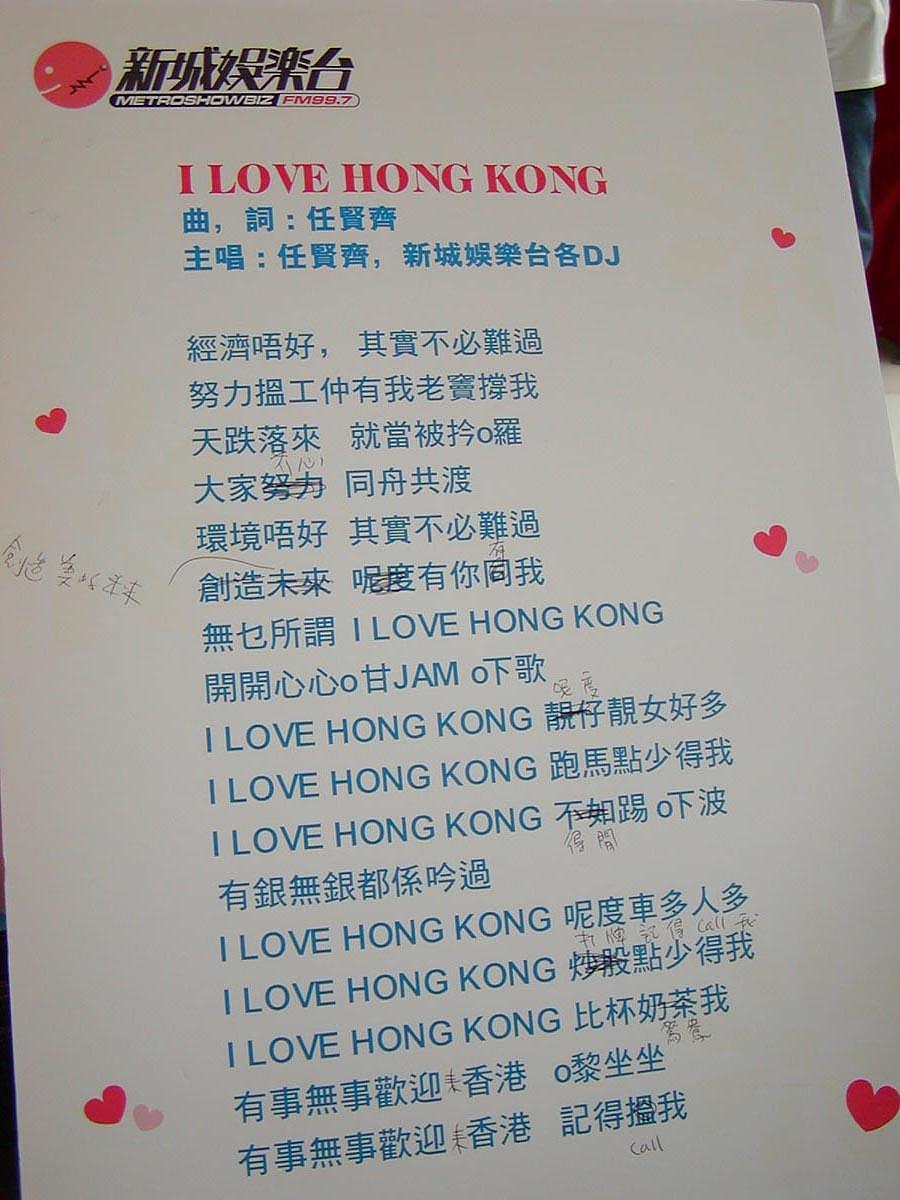 新城娛樂台
METROSHOWBIZ FM99.7
I LOVE HONG KONG
曲，詞：任賢齊
主唱：任賢齊，新城娛樂台各DJ
經濟唔好， 其實不必難過
努力搵工仲有我老竇撐我
天跌落來 就當被扲o羅
齐心
大家努力 同舟共渡
環境唔好 其實不必難過
創造美好未来
有
創造未來 呢度有你同我
無乜所謂 I LOVE HONG KONG
開開心心o甘JAM o下歌
呢度
I LOVE HONG KONG 靚仔靚女好多
I LOVE HONG KONG 跑馬點少得我
I LOVE HONG KONG 不如踢 o下波
得閒
有銀無銀都係吟過
I LOVE HONG KONG 呢度車多人多
打牌記得 call 我
I LOVE HONG KONG 炒股點少得我
I LOVE HONG KONG 比杯奶茶我
鴛鴦
有事無事歡迎来香港 o黎坐坐
有事無事歡迎来香港 記得搵我
call